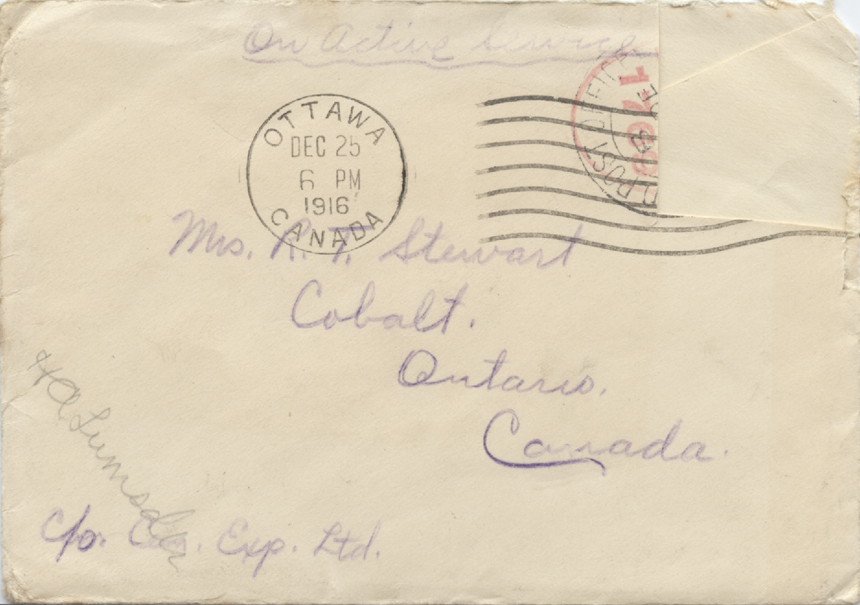 On Active Service
OTTAWA
DEC 25
6 PM
1916
CANADA
POST OFFICE
Mrs. R. T. Stewart
Cobalt.
Ontario.
Canada.
H A Lumsden
c/o. Exp. Ltd.